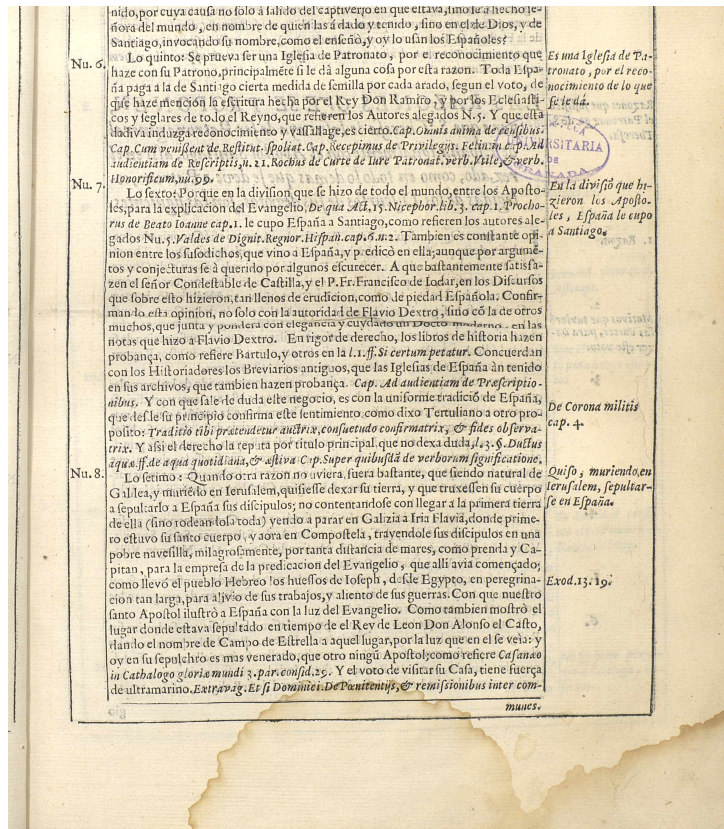 nido, por cuya causa no solo à salido del captiverio en que estava, sino le à hecho se-
ñora del mundo, en nombre de quien las á dado y tenido, sino en el de Dios, y de
Santiago, invocando su nombre, como el enseñó, y oy lo usan los Españoles?
Nu. 6.
Lo quinto: Se prueva ser una Iglesia de Patronato, por el reconocimiento que
haze con su Patrono, principalmēte si le dà alguna cosa por esta razon. Toda Espa-
ña paga a la de Santiago cierta medida de semilla por cada arado, segun el voto, de
que haze mencion la escritura hecha por el Rey Don Ramiro, y por los Eclesiasti-
cos y seglares de todo el Reyno, que refieren los Autores alegados N. 5. Y que esta
dadiva induzga reconocimiento y vassallage, es cierto. Cap. Omnis anima de censibus.
Cap. Cum venissent de Restitut. spoliat. Cap. Recepimus de Privilegijs. Felin. in cap. Ad
audientiam de Rescriptis, n. 21. Rochus de Curte de Iure Patronat. verb. Vtile, & verb.
Honorificum, nu. 99.
Es una Iglesia de Pa-
tronato, por el reco-
nocimiento de lo que
se le dá.
Nu. 7.
Lo sexto: Porque en la division que se hizo de todo el mundo, entre los Aposto-
les, para la explicacion del Evangelio, De qua Act, 15. Nicephor. lib. 3. cap. 1. Procho-
rus de Beato Ioanne cap. 1. le cupo España a Santiago, como refieren los autores ale-
gados Nu. 5. Valdes de Dignit. Regnor. Hispan. cap. 6. n. 2. Tambien es constante opi-
nion entre los susodichos, que vino a España, y predicó en ella; aunque por argumē-
tos y conjecturas se à querido por algunos escurecer. A que bastantemente satisfa-
zen el señor Condestable de Castilla, y el P. Fr. Francisco de Iodar, en los Discursos
que sobre esto hizieron, tan llenos de erudicion, como de piedad Española. Confir-
mando esta opinion, no solo con la autoridad de Flavio Dextro, sino cō la de otros
muchos, que junta y pondera con elegancia y cuydado un Docto moderno, en las
notas que hizo a Flavio Dextro. En rigor de derecho, los libros de historia hazen
probança, como refiere Bartulo, y otros en la l. 1. ff. Si certum petatur. Concuerdan
con los Historiadores los Breviarios antiguos, que las Iglesias de España àn tenido
en sus archivos, que tambien hazen probança. Cap. Ad audientiam de Præscriptio-
nibus. Y con que sale de duda este negocio, es con la uniforme tradició de España,
que desde su principio confirma este sentimiento como dixo Tertuliano a otro pro-
posito: Traditio tibi prætendetur auctrix, consuetudo confirmatrix, & fides observa-
trix. Y assi el derecho la reputa por titulo principal que no dexa duda, l. 3. §. Ductus
aquæ. ff. de aqua quotidiana, & æstiva Cap. Super quibusdā de verborum significatione.
En la divisiō que hi-
zieron los Aposto-
les, España le cupo
a Santiago.
De Corona militis
cap. 4.
Nu. 8.
Lo setimo: Quando otra razon no uviera, fuera bastante, que siendo natural de
Galilea, y muriēdo en Ierusalem, quisiesse dexar su tierra, y que truxessen su cuerpo
a sepultarlo a España sus discipulos; no contentandose con llegar a la primera tierra
de ella (sino rodeandola toda) yendo a parar en Galizia a Iria Flavia, donde prime-
ro estuvo su santo cuerpo, y aora en Compostela, trayendole sus discipulos en una
pobre navesilla, milagrosamente, por tanta distancia de mares, como prenda y Ca-
pitan, para la empresa de la predicacion del Evangelio, que alli avia començado;
como llevó el pueblo Hebreo los huessos de Ioseph, desde Egypto, en peregrina-
cion tan larga, para alivio de sus trabajos, y aliento de sus guerras. Con que nuestro
santo Apostol ilustrò a España con la luz del Evangelio. Como tambien mostrò el
lugar donde estava sepultado en tiempo de el Rey de Leon Don Alonso el Casto,
dando el nombre de Campo de Estrella a aquel lugar, por la luz que en el se veìa: y
oy en su sepulchro es mas venerado, que otro ningū Apostol; como refiere Casanæo
in Cathalogo gloriæ mundi 3. par. consid. 29. Y el voto de visitar su Casa, tiene fuerça
de ultramarino. Extravag. Et si Dominici. De Pœnitentijs, & remissionibus inter com-
munes.
Quiso, muriendo, en
Ierusalem, sepultar-
se en España.
Exod. 13. 19.
VERSITARIA
DE
GRANADA